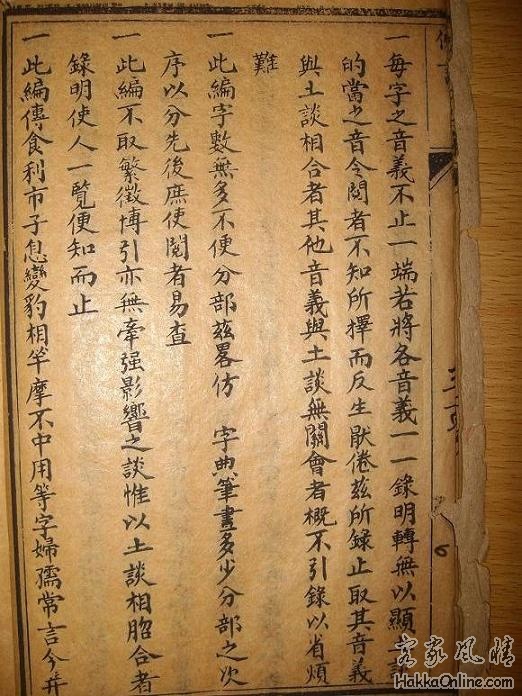 一每字之音義不止一端若將各音義一一錄明轉無以顯土談
的當之音令閱者不知所擇而反生厭倦茲所錄止取其音義
與土談相合者其他音義與土談無關會者概不引錄以省煩
難
一此編字數無多不便分部茲畧仿 字典筆畫多少分部之次
序以分先後庶使閱者易查
一此編不取繁徵博引亦無牽强影響之談惟以土談相脗合者
錄明使人一覽便知而止
一此編傳食利市子息變豹相竿摩不中用等字婦孺常言今并
客家風情
HakkaOnline.com